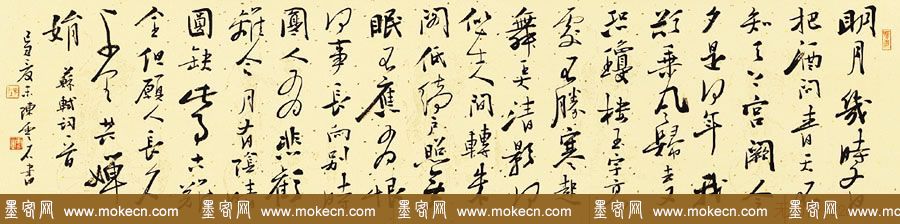 明月幾時有
把酒問青天不
知天上宮闕今
夕是何年我
欲乘風歸去又
恐瓊樓玉宇高
處不勝寒起
舞弄清影何
似在人間轉朱
閣低綺戶照無
眠不應有恨
何事長向別時
圓人有悲歡
離合月有陰晴
圓缺此事古難
全但願人長久
千里共嬋
娟
蘇軾詞一首
書
墨客网 www.mokecn.com 墨客网 www.mokecn.com 墨客网 www.mokecn.com 墨客网 www.mokecn.com